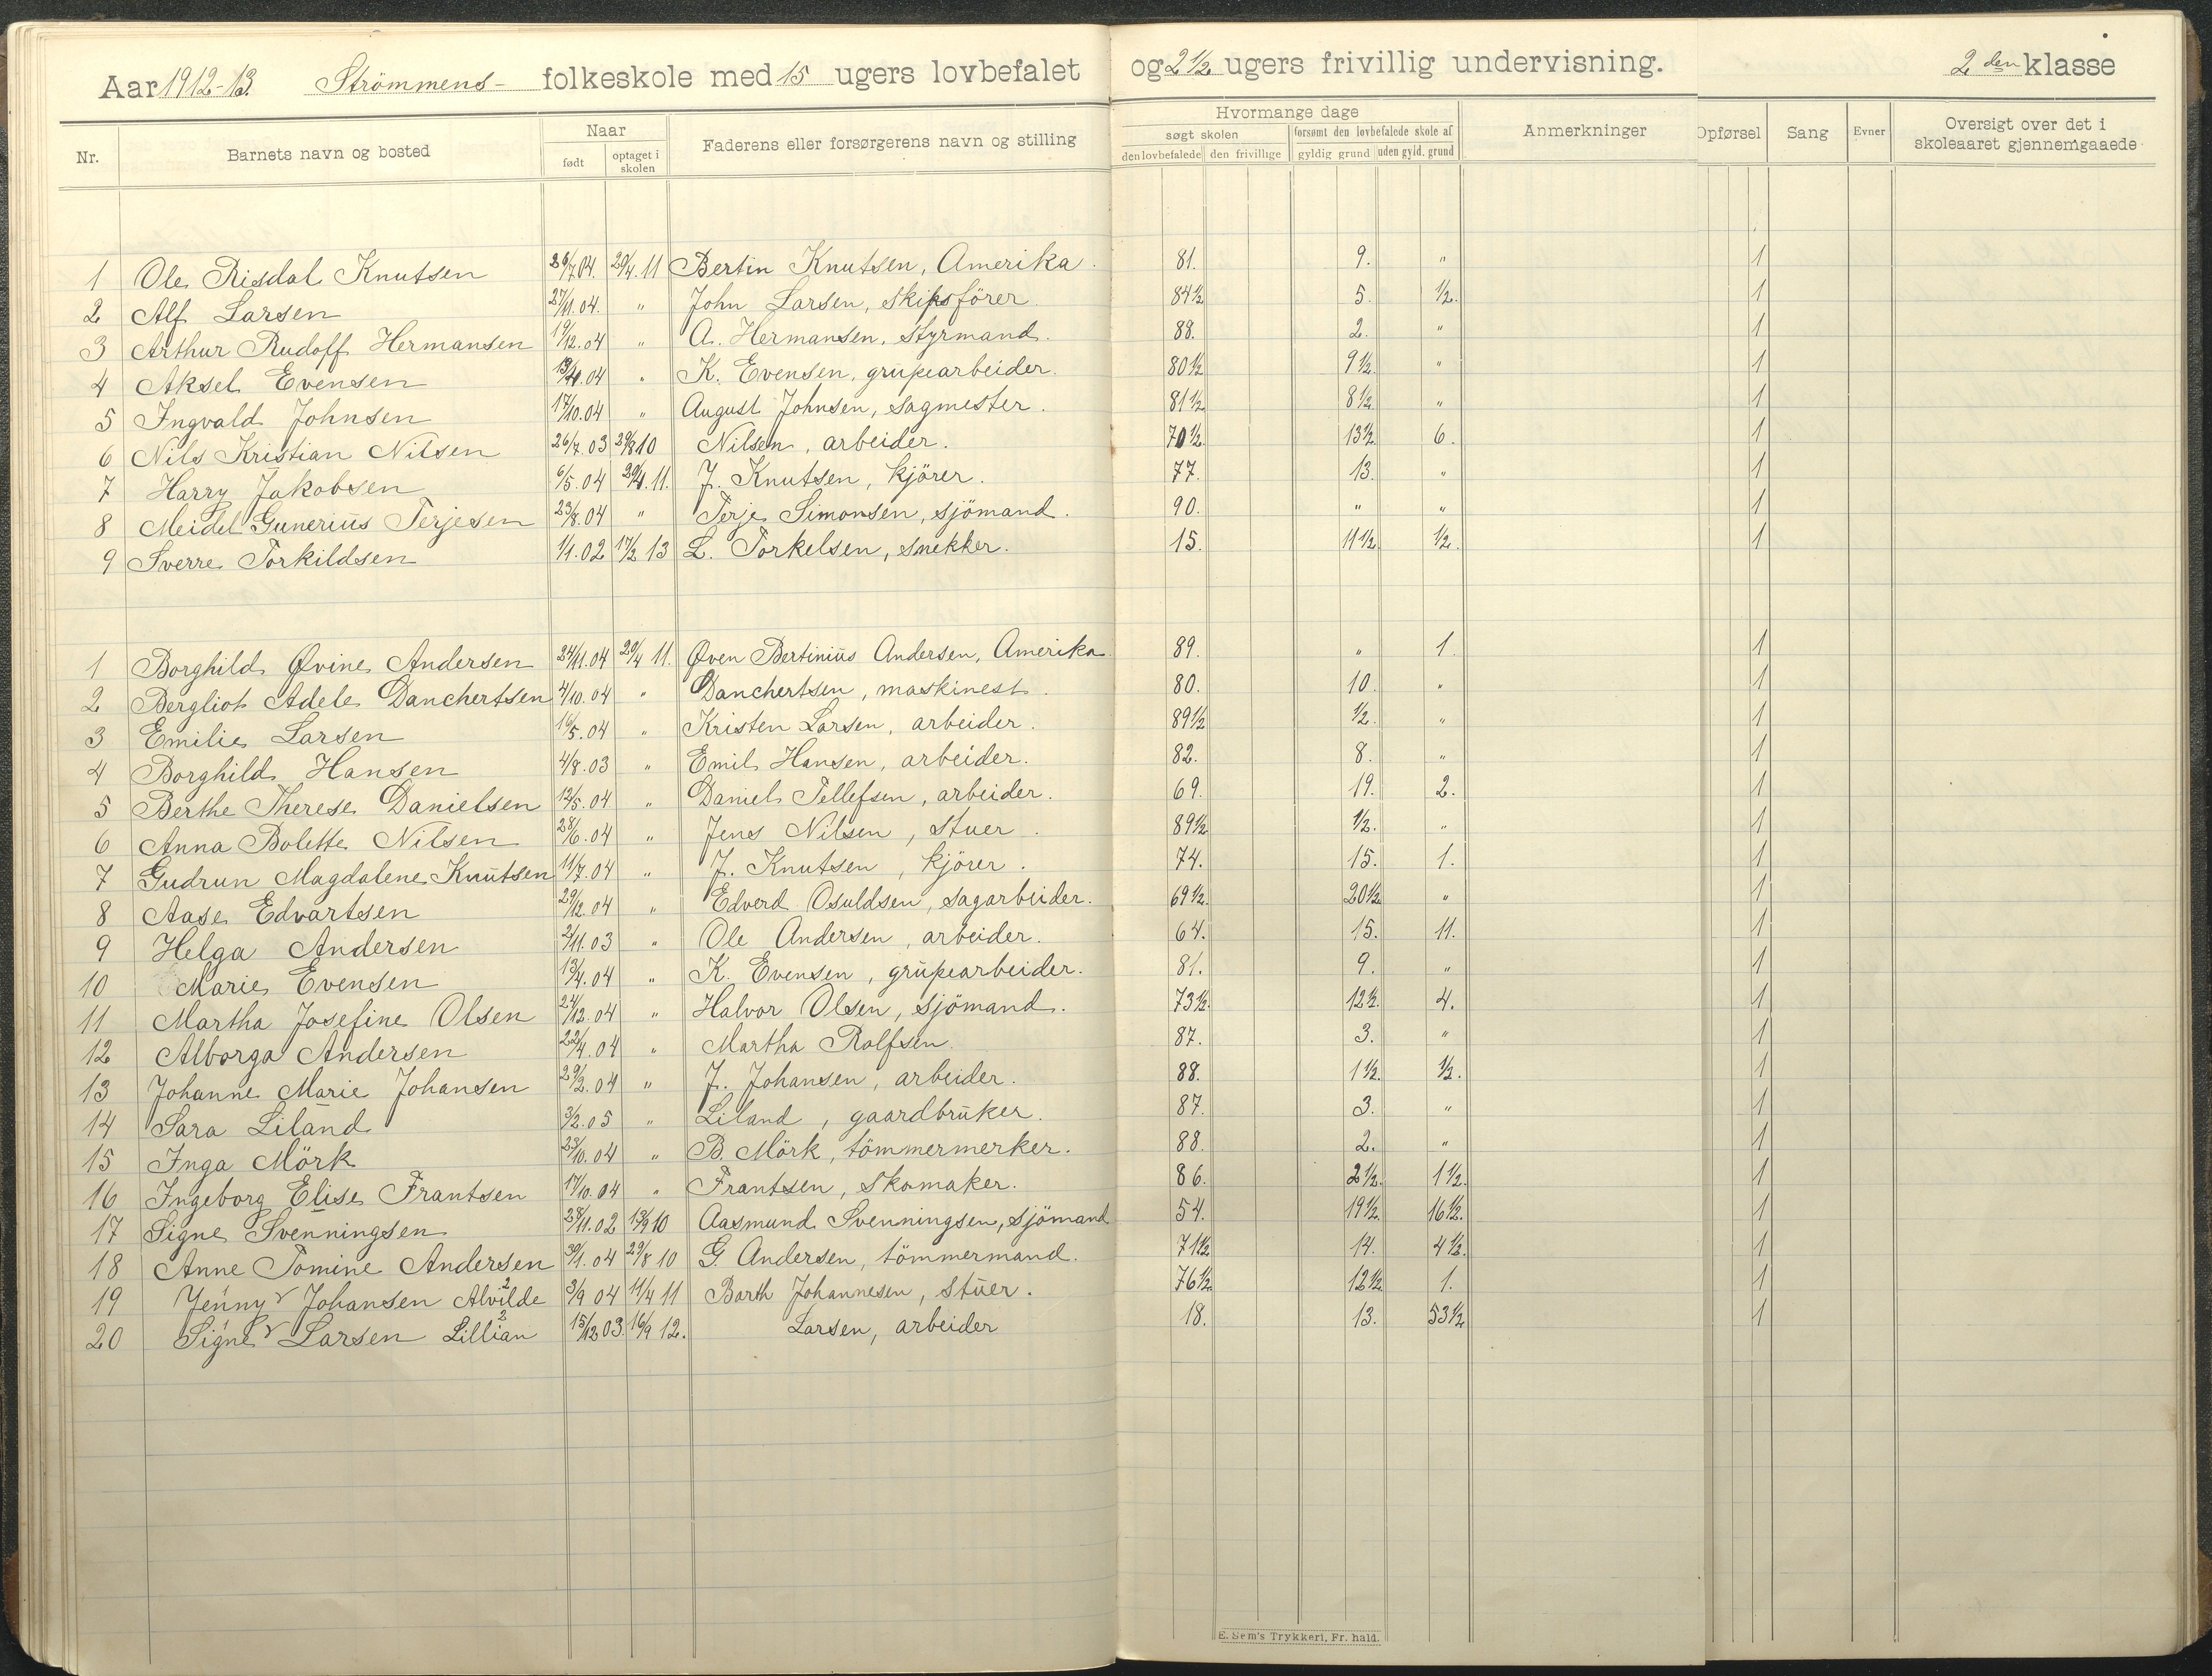 Aar 1912-13. Strömmens- folkeskole med 15 ugers lovbefalet og 2 1/2 ugers frivillig undervisning. 2den klasse
Nr. Barnets navn og bosted Naar født optaget i skolen Faderens eller forsørgerens navn og stilling Hvormange dage søgt skolen den lovbefalede den frivillige forsømt den lovbefalede skole af gyldig grund uden gyld. grund Anmerkninger Opførsel Sang Evner Oversigt over det i skoleaaret gjennemgaaede
1 Ole Risdal Knutsen 26/7 04. 20/4. 11 Bertin Knutsen, Amerika. 81. 9. " 1
2 Alf Larsen 27/11. 04. " John Larsen, skipsförer. 84 1/2 5. 1/2. 1
3 Arthur Rudoff Hermansen 19/12. 04 " A. Hermansen, styrmand. 88. 2. " 1
4 Aksel Evensen 04 " K. Evensen, grubearbeider. 80 1/2 9 1/2. " 1
5 Ingvald Johnsen 17/10. 04 " August Johnsen, sagmester. 81 1/2 8 1/2 " 1
6 Nils Kristian Nilsen 26/7. 03 29/8 10 Nilsen, arbeider. 70 1/2 13 1/2 6. 1
7 Harry Jakobsen 6/5. 04 20/4. 11. J. Knutsen, kjörer. 77. 13. " 1
8 Meidel Gunerius Terjesen 23/8. 04 " Terje Simonsen, sjömand. 90. " " 1
9 Sverre Torkildsen 1/1. 02 17/2 13 L. Torkelsen, snekker. 15. 11 1/2 1/2. 1
1 Borghild Øvine Andersen 24/11. 04 20/4 11. Øven Bertinius Andersen, Amerika. 89. " 1. 1
2 Bergliot Adele Danchertsen 4/10. 04 " Danchertsen, maskinest. 80. 10. " 1
3 Emilie Larsen 16/5. 04 " Kristen Larsen, arbeider. 89 1/2 1/2. " 1
4 Borghild Hansen 4/8. 03 " Emil Hansen, arbeider. 82. 8. " 1
5 Berthe Therese Danielsen 12/5. 04 " Daniel Tellefsen, arbeider. 69. 19. 2. 1
6 Anna Bolette Nilsen 28/6. 04 " Jens Nilsen, stuer. 89 1/2 1/2. " 1
7 Gudrun Magdalene Knutsen 11/7. 04 " J. Knutsen, kjörer. 74. 15. 1. 1
8 Aase Edvartsen 29/12. 04 " Edverd Osuldsen, sagarbeider. 69 1/2. 20 1/2 " 1
9 Helga Andersen 2/11. 03 " Ole Andersen, arbeider. 64. 15. 11. 1
10 Marie Evensen 13/4. 04 " K. Evensen, grubearbeider. 81. 9. " 1
11 Martha Josefine Olsen 24/12. 04 " Halvor Olsen, sjömand. 73 1/2. 12 1/2. 4. 1
12 Alborga Andersen 22/4. 04 " Martha Rolfsen. 87. 3. " 1
13 Johanne Marie Johansen 29/2. 04 " J. Johansen, arbeider. 88. 1 1/2. 1/2. 1
14 Sara Liland 3/2. 05 " Liland, gaardbruker. 87. 3. " 1
15 Inga Mörk 23/10. 04 " B. Mörk, tömmermerker. 88. 2. " 1
16 Ingeborg Elise Frantsen 17/10. 04 " Frantsen, skomaker. 86. 2 1/2. 1 1/2. 1
17 Signe Svenningsen 28/11. 02 13/9 10 Aasmund Svenningsen, sjömand 54. 19 1/2. 16 1/2. 1
18 Anne Tomine Andersen 30/1. 04 29/8 10 G. Andersen, tömmermand. 71 1/2 14. 4 1/2. 1
19 Jenny Johansen Alvilde 3/9 04 11/4 11 Barth Johannesen, stuer. 76 1/2 12 1/2 1. 1
20 Signe Larsen Lillian 15/12 03. 16/9 12. Larsen, arbeider 18. 13. 53 1/2 1
E. Sem's Trykkeri, Fr. hald.